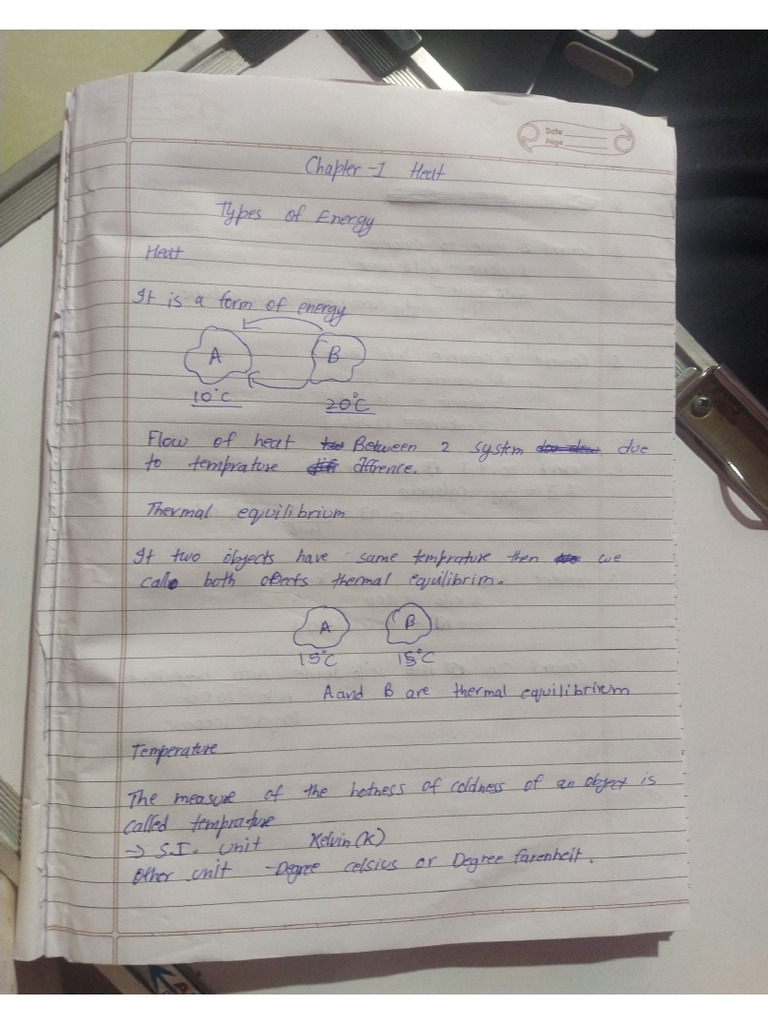 Date
Page
Chapter-1 Heat
Types of Energy
Heat
It is a form of energy
A B
10°C 20°C
Flow of heat Between 2 system due
to temprature diffrence.
Thermal equilibrium
If two objects have same temprature then we
call both objects thermal equilibrim.
A B
15°C 15°C
A and B are thermal equilibrium
Temperature
The measure of the hotness of coldness of an object is
called temprature
→ S.I. unit Kelvin (K)
Other unit - Degree celsius or Degree farenheit.